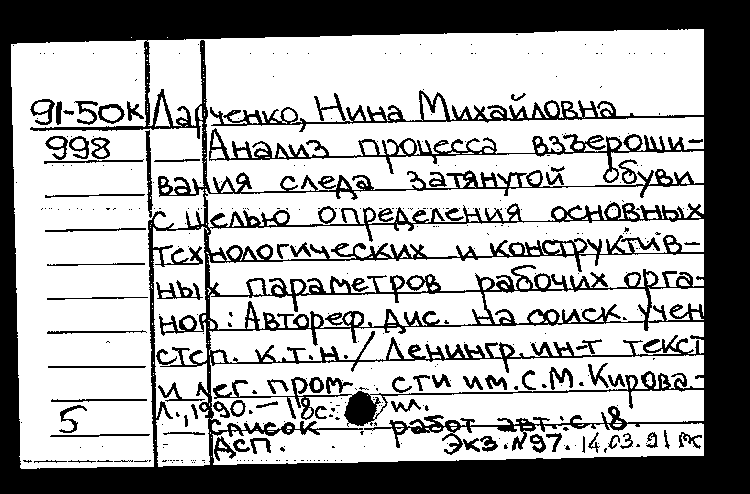 91-50к Ларченко, Нина Михайловна.
998 Анализ процесса взъероши-
вания следа затянутой обуви
с целью определения основных
технологических и конструктив-
ных параметров рабочих орга-
нов: Автореф. дис. на соиск. учен
степ. к.т.н. / Ленингр. ин-т текст
и лег. пром-сти им. С.М. Кирова.-
Л., 1990.- 18с.: ил.
5 список работ авт.: с.18.
ДСП. Экз. №97. 14.03.91